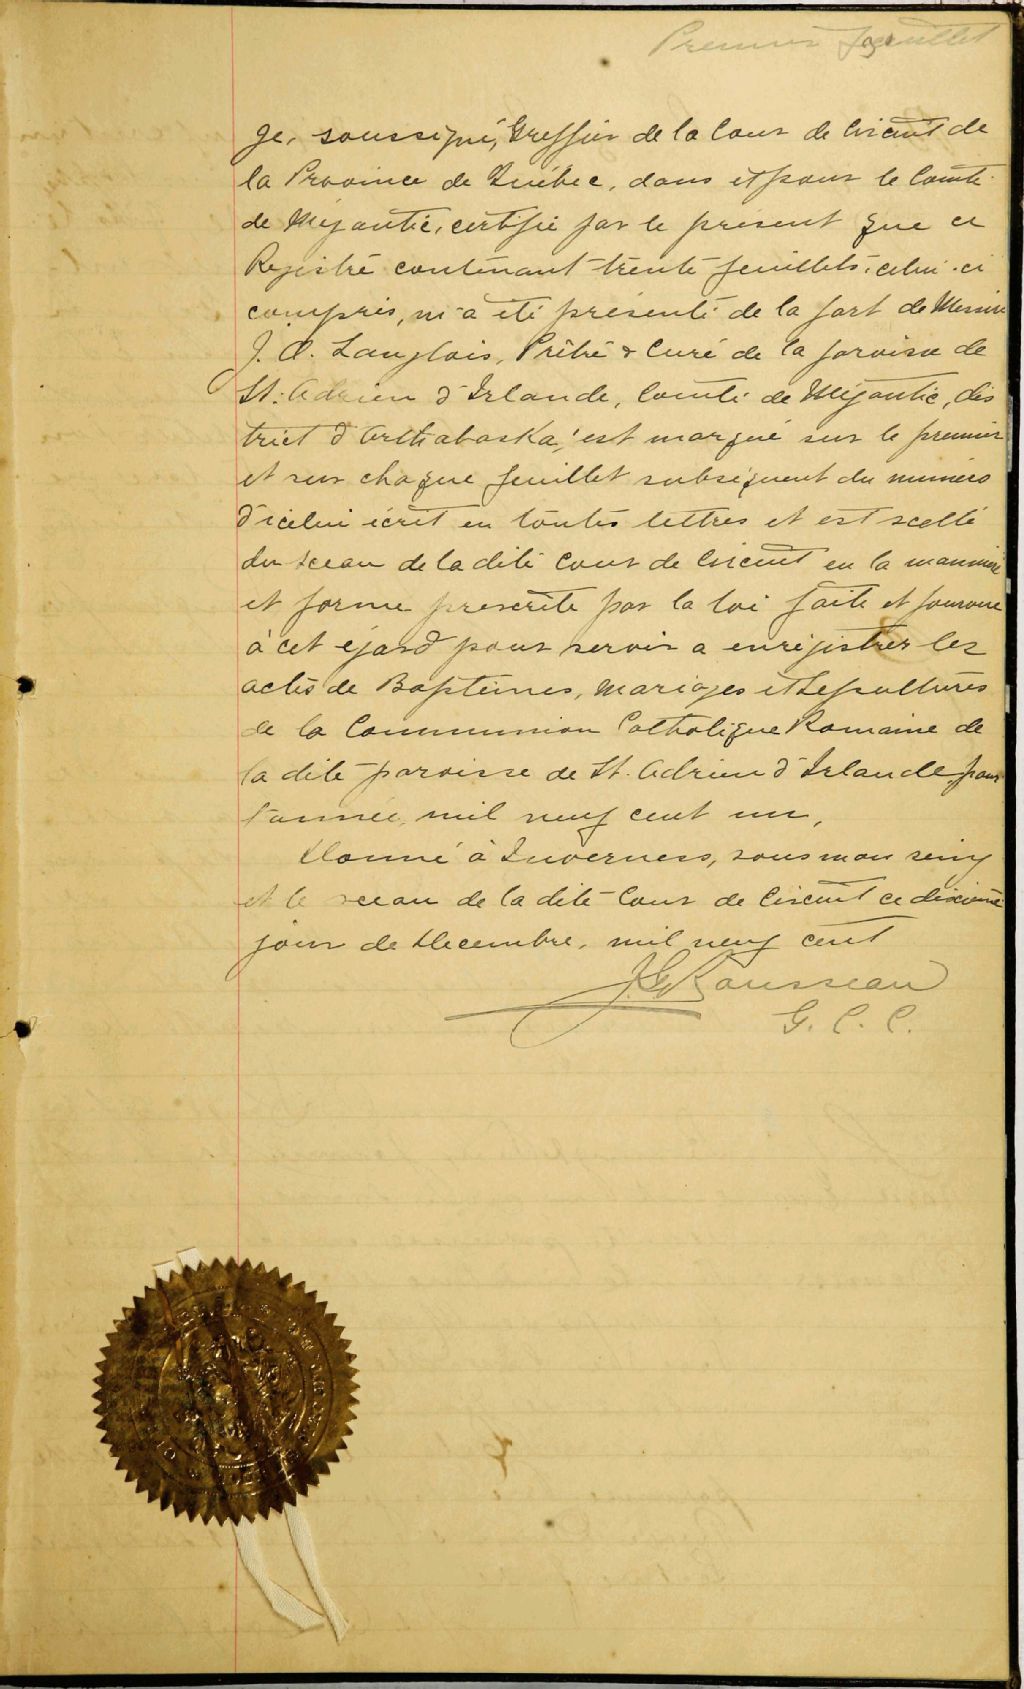 Premier feuillet
Je, soussigné, Greffier de la Cour de Circuit de
la Province de Québec, dans et pour le Comté
de Mégantic, certifie par le présent que ce
Régistre contenant trente feuillets, celui-ci
compris, m'a été présenté de la part de Messire
J. O. Langlois, Prêtre & Curé de la paroisse de
St. Adrien d'Irlande, Comté de Mégantic, dis
trict d'Arthabaska, est marqué sur le premier
et sur chaque feuillet subséquent du numéro
d'icelui écrit en toutes lettres et est scellé
du sceau de la dite Cour de Circuit en la manière
et forme prescrite par la loi faite et pourvue
à cet égard pour servir a enrégistrer les
actes de Baptêmes, Mariages et Sepultures
de la Communion Catholique Romaine de
la dite paroisse de St. Adrien d'Irlande, pour
l'année, mil neuf cent un,
Donné à Inverness, sous mon seing
et le sceau de la dite Cour de Circuit ce dixième
jour de Decembre, mil neuf cent
J.G. Rousseau
G. C. C.